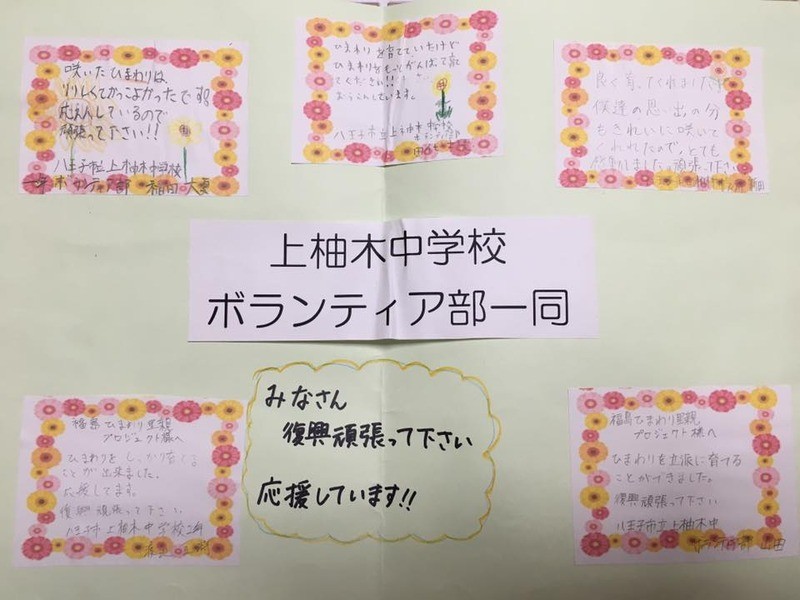 咲いたひまわりは
りりしくてかっこよかったです。
応えんしているので
頑張って下さい!!
八王子市立上柚木中学校
ボランティア部 稲田
ひまわりを育てていたけど
ひまわりももっとがんばって
ください!!
おうえんしています。
八王子市立上柚木中学校
良く育ってくれました
僕達の思い出の分
もきれいに咲いて
くれたので、とても
頑張って下さい
上柚木中学校
ボランティア部一同
福島ひまわり里親
プロジェクト様へ
ひまわりをしっかり育てる
ことが出来ました。
応援してます。
復興頑張って下さい
八王子市上柚木中学校2年
みなさん
復興頑張って下さい
応援しています!!
福島ひまわり里親
プロジェクト様へ
ひまわりを立派に育てる
ことができました。
復興頑張って下さい
八王子市立上柚木中
山田